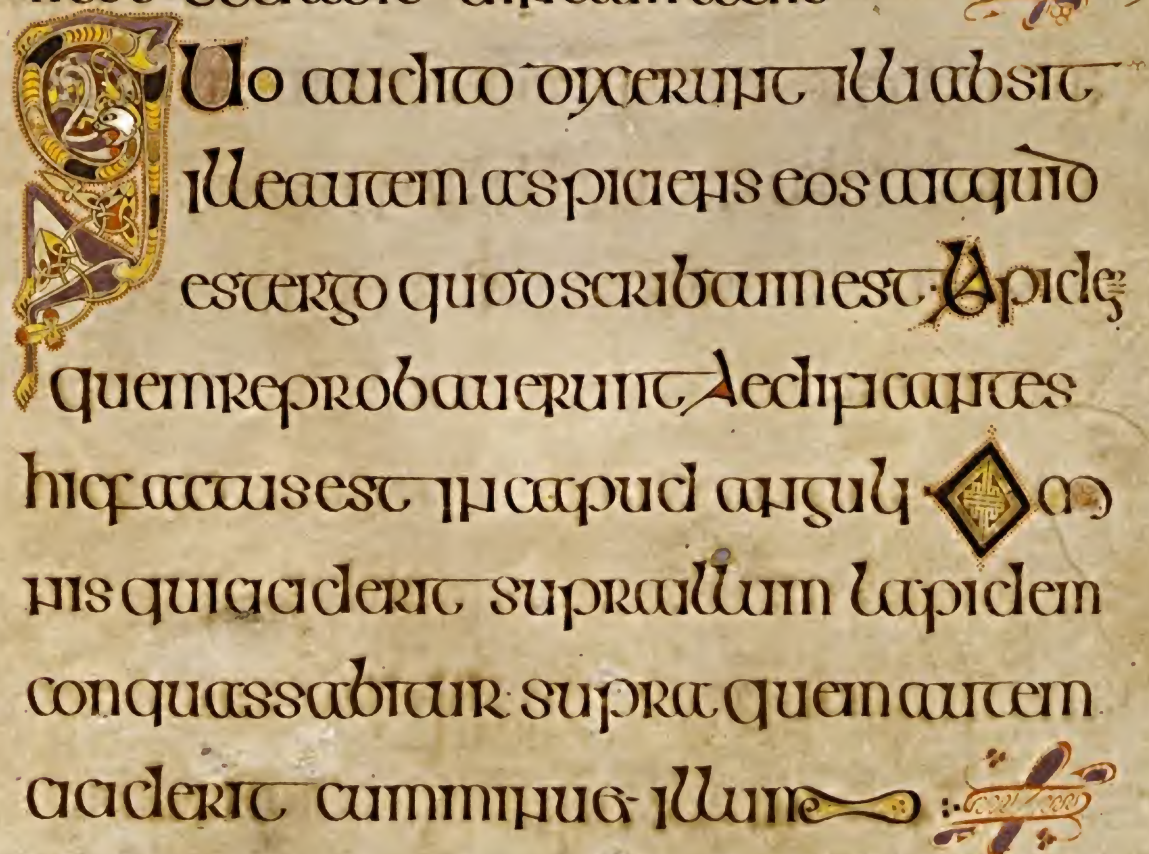 Quo audito dixerunt illi absit
ille autem aspiciens eos ait quid
est ergo quod scribtum est · Lapidē
quem reprobauerunt Aedificantes
hic factus est in capud anguli Om
nis qui ciciderit supra illum lapidem
conquassabitur · supra quem autem
ciciderit cumminuet illum